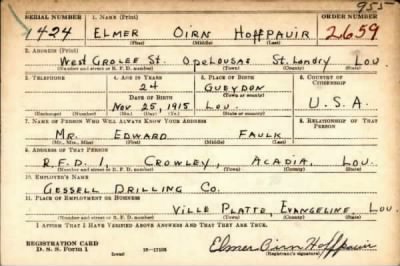 955
SERIAL NUMBER 1. NAME (Print) ORDER NUMBER
1424 ELMER OIRN HOFFPAUIR 2659
(First) (Middle) (Last)
2. ADDRESS (Print)
WEST GROLEE ST. OPELOUSAS ST. LANDRY LOU.
(Number and street or R. F. D. number) (Town) (County) (State)
3. TELEPHONE 4. AGE IN YEARS 5. PLACE OF BIRTH 6. COUNTRY OF CITIZENSHIP
24 GUEYDON
DATE OF BIRTH (Town or county)
NOV 25, 1915 LOU. U.S.A.
(Mo.) (Day) (Yr.) (State or country)
7. NAME OF PERSON WHO WILL ALWAYS KNOW YOUR ADDRESS 8. RELATIONSHIP OF THAT PERSON
MR. EDWARD FAULK
(Mr., Mrs., Miss) (First) (Middle) (Last)
9. ADDRESS OF THAT PERSON
R.F.D. 1, CROWLEY, ACADIA, LOU.
(Number and street or R. F. D. number) (Town) (County) (State)
10. EMPLOYER'S NAME
GESSELL DRILLING CO.
11. PLACE OF EMPLOYMENT OR BUSINESS
VILLE PLATTE, EVANGELINE, LOU.
(Number and street or R. F. D. number) (Town) (County) (State)
I AFFIRM THAT I HAVE VERIFIED ABOVE ANSWERS AND THAT THEY ARE TRUE.
REGISTRATION CARD
D. S. S. Form 1 (over) Elmer Oirn Hoffpauir
(Registrant's signature)